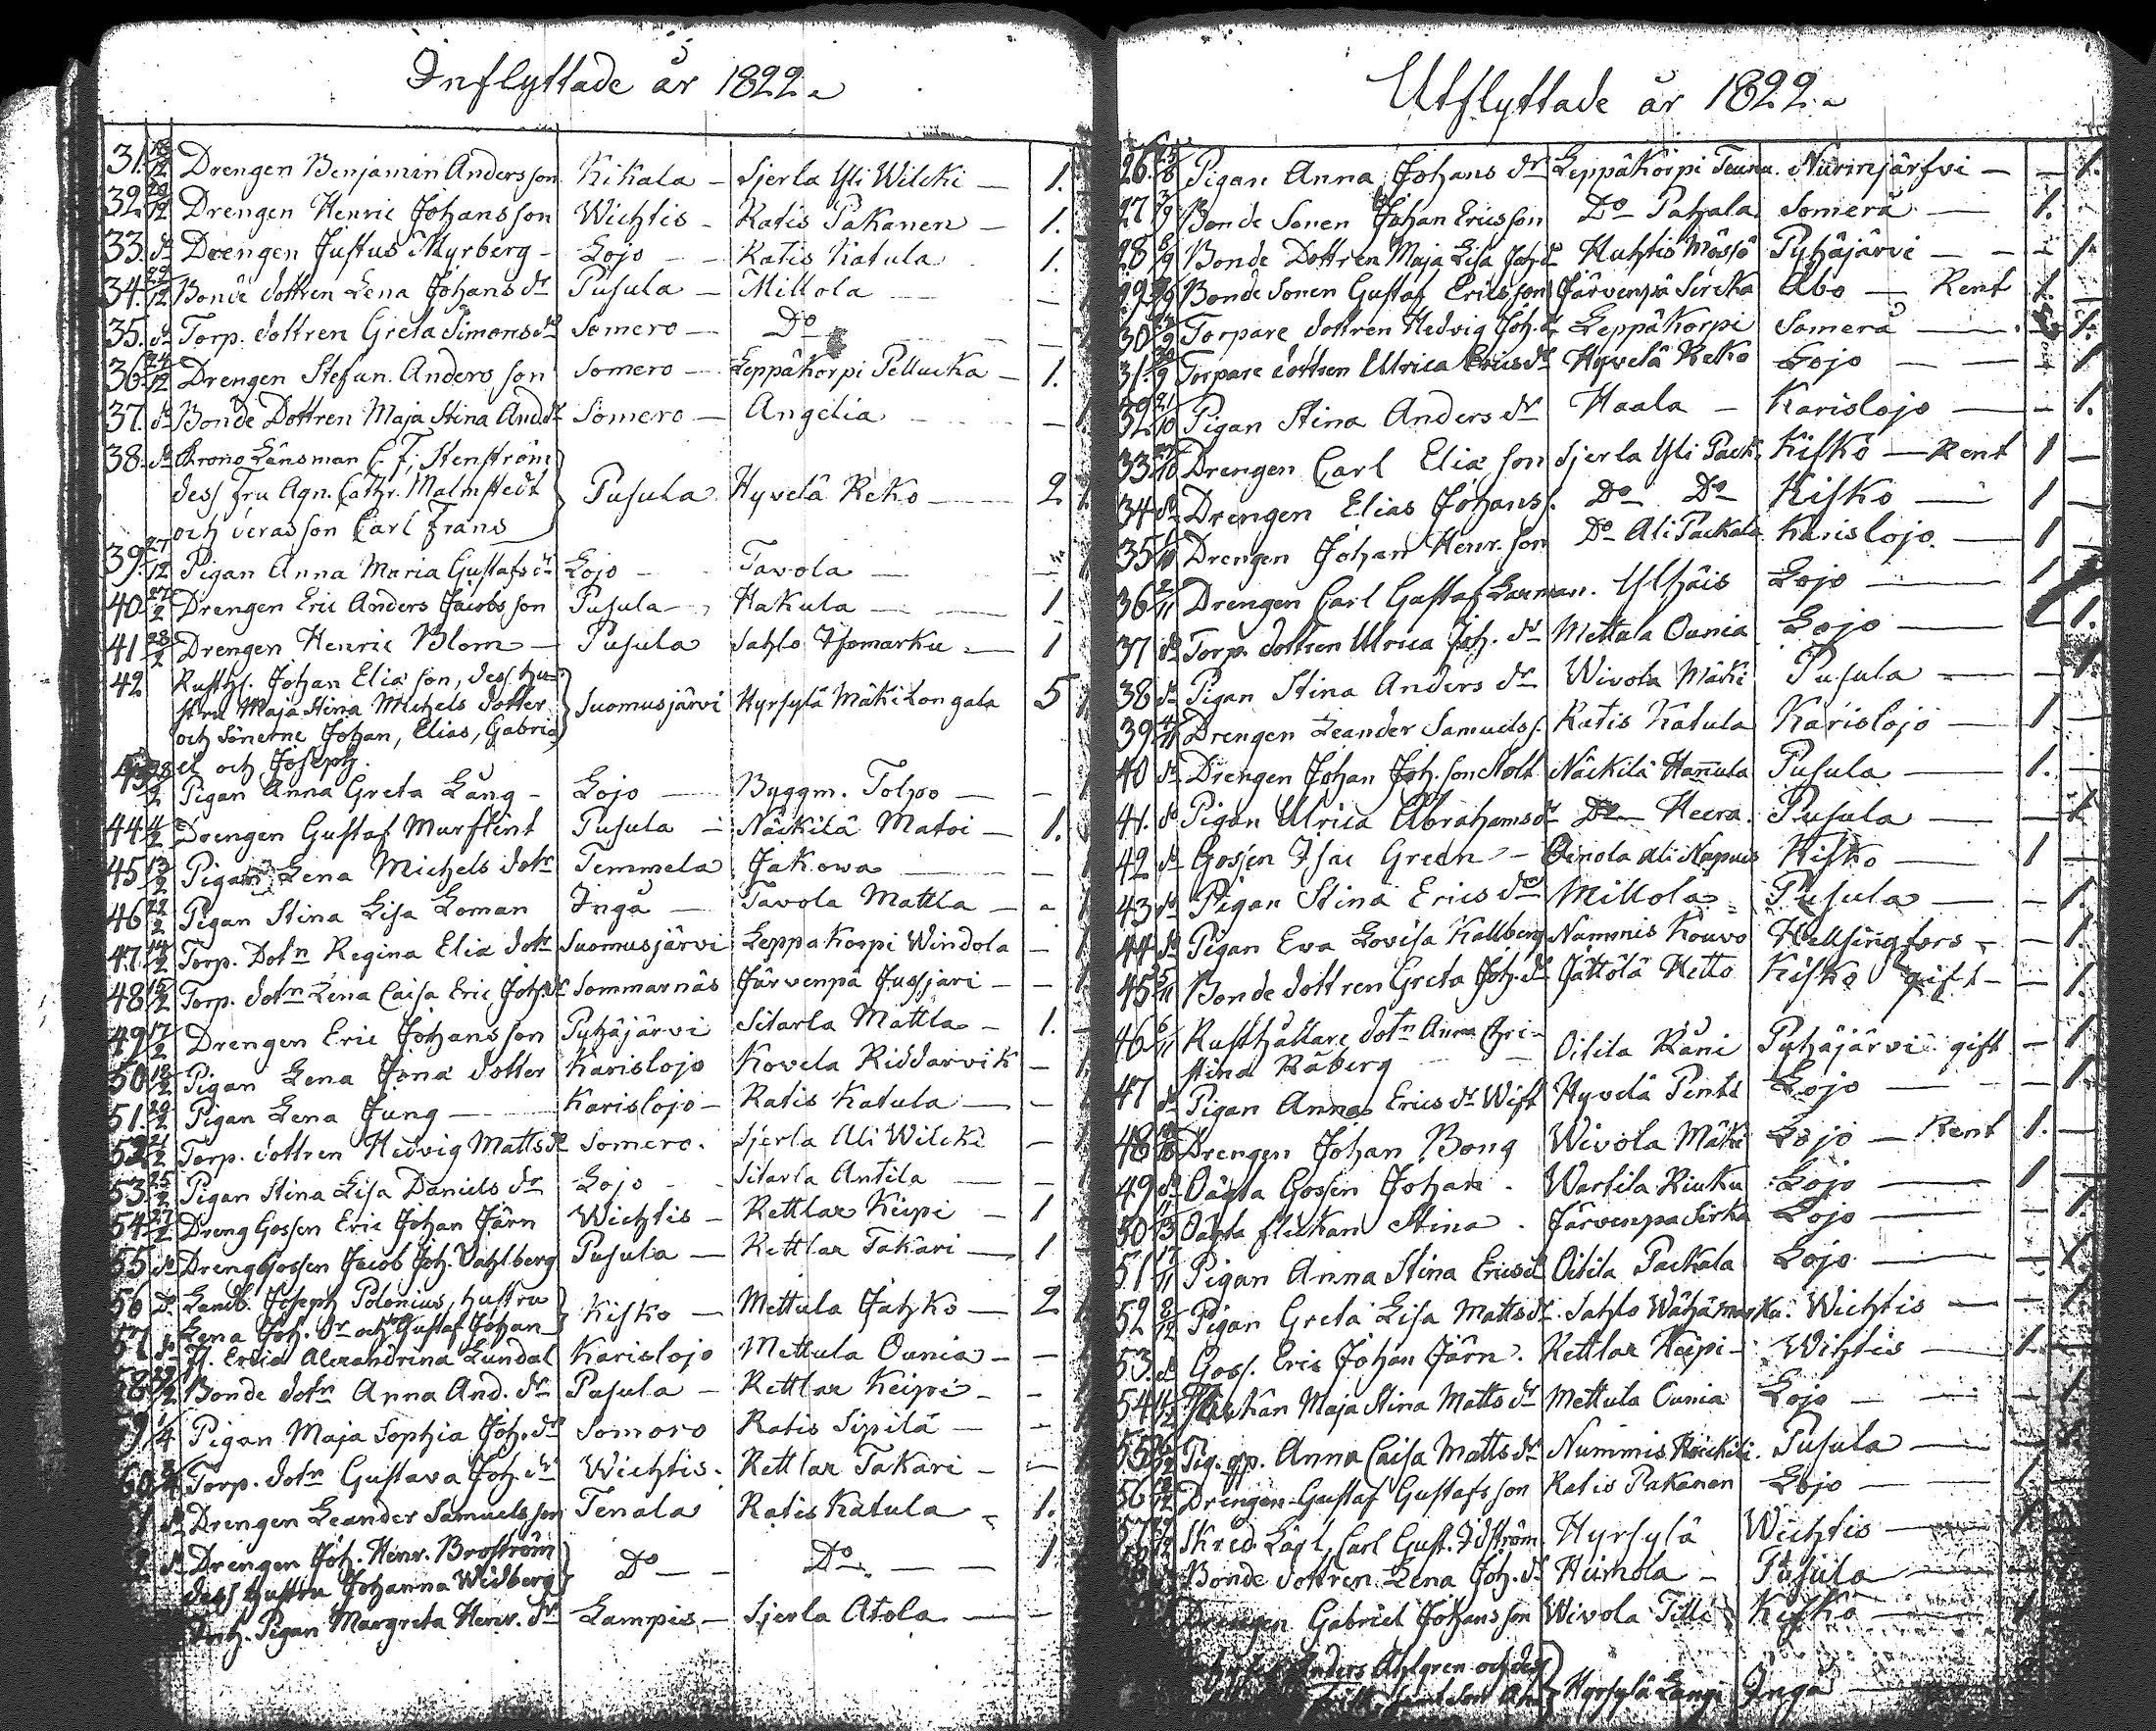 Inflyttade år 1822
31. 18/12 Drengen Benjamin Andersson Kikala — Sjerla Yli Wilcki — 1.
32. 20/12 Drengen Henric Johansson Wichtis — Katis Pakanen — 1.
33. do Drengen Justus Myrberg — Lojo — Katis Katula 1.
34. 22/12 Bonde dottren Lena Johans dr Pusula — Millola —
35. do Torp. dottren Greta Simons dr Somero — Do —
36. 24/12 Drengen Stefan Andersson Somero — Leppäkorpi Pellucka — 1.
37. do Bonde Dottren Maja Stina And.dr Somero — Angelia —
38. do Krono Länsman C. F. Stenström
dess Fru Agn. Cathr. Malmstedt Pusula Hyvelä Reko — 2
och deras son Carl Frans
39. 27/12 Pigan Anna Maria Gustafs dr Lojo — Tavola —
40 27/2 Drengen Eric Anders Jacobsson Pusula — Hakula — 1
41 28/2 Drengen Henric Blom — Pusula Sahlo Isomarku — 1
42 Rusth. Johan Eliæ son, dess hu-
stru Maja Stina Michels dotter Suomusjärvi Hyrsylä Mäkilongala 5
och Sönerne Johan, Elias, Gabri-
el och Joseph.
43 Pigan Anna Greta Lång — Lojo — Byggm. Tolpo —
44 4/2 Drengen Gustaf Murflint Pusula — Näckilä Matoi — 1.
45 13/2 Pigan Lena Michels dotr Temmela Jakowa —
46 22/2 Pigan Stina Lisa Loman Ingå — Tavola Mattla —
47 14/2 Torp. Dotn Regina Eliæ dotr Suomusjärvi Leppakorpi Windola —
48 15/2 Torp. dotn Lena Caisa Eric Joh.dr Sommarnäs Järvenpä Jussjari —
49 17/2 Drengen Eric Johansson Pyhäjärvi Sitarla Mattla — 1.
50 18/2 Pigan Lena Jona dotter Karislojo Kovela Riddarvik —
51. 20/2 Pigan Lena Jung — Karislojo — Ratis Katula —
52 21/2 Torp. dottren Hedvig Matts dr Somero. Sjerla Ali Wilcki —
53 25/2 Pigan Stina Lisa Daniels dr Lojo — Sitarla Antila —
54 27/2 Dreng Gossen Eric Johan Järn Wichtis — Rettlax Keipi — 1
55 do Dreng Gossen Jacob Joh. Vahlberg Pusula — Rettlax Takari — 1
56 do Landb. Joseph Polonius, hustru
Lena Joh. dr och Gustaf Johan Kisko — Mettula Jahko — 2
57 do Fl. Erica Alexandrina Lundal Karislojo Mettula Ounia —
58 Bonde dotn Anna And. dr Pusula — Rettlax Keipi —
9 1/4 Pigan Maja Sophia Joh. dr Somero Ratis Sipilä —
60 Torp. dotn Gustava Joh. dr Wichtis. Rettlax Takari —
1 do Drengen Leander Samuelsson Tenala Ratis Katula — 1.
2 do Drengen Joh. Henr. Broström
dess hustru Johanna Widberg Do — Do — 1.
Pigan Margreta Henr. dr Lampis — Sjerla Atola —
Utflyttade år 1822
26. Pigan Anna Johans dr Leppäkorpi Teuna Nurmjärfvi — 1.
27 Bonde Sonen Johan Ericsson Do Pahala Somera — 1.
28 Bonde Dottren Maja Lisa Joh.dr Huhtis Mässö Pyhäjärvi — 1
29 Bonde Sonen Gustaf Ericsson Järvenpä Sircka Åbo — Rent 1.
30 Torpare dottren Hedvig Joh. dr Leppäkorpi Somera — 1.
31. Torpare dottren Ulrica Erics dr Hyvelä Reko Lojo — 1
32 21/10 Pigan Stina Anders dr Haala — Karislojo — 1.
33 27/10 Drengen Carl Elia son Sjerla Yli Pack. Kisko — Rent 1
34 do Drengen Elias Johanss. Do Do Kisko — 1
35 Drengen Johan Henr. son Do Ali Packala Karislojo — 1
36 2/11 Drengen Carl Gustaf Laxman. Ylhäis Lojo — 1
37 do Torp. dottren Ulrica Joh. dr Mettula Ounia Lojo — 1.
38 do Pigan Stina Anders dr Wivola Mäki Pusula — 1.
39 4/11 Drengen Leander Samuelss. Ratis Katula Karislojo — 1
40 do Drengen Johan Joh. son Stolt Näckilä Hannula Pusula — 1.
41. do Pigan Ulrica Abrahams dr Do — Heera. Pusula — 1
42 do Gossen Isac Green — Oenola Ali Napuis Kisko — 1
43 do Pigan Stina Erics dr Millola Pusula — 1.
44 do Pigan Eva Lovisa Kallberg Nummis Kouvo Hellsingfors — 1.
45 5/11 Bonde dottren Greta Joh. dr Jättölä Hetto Kisko gift — 1.
46 6/11 Rusthållare dotn Anna Chri-
stina Råberg Oitila Råni Pyhäjärvi gift — 1
47 do Pigan Anna Erics dr Wift Hyvelä Pentt Lojo — 1.
48 Drengen Johan Bong Wivola Mäki Lojo — Rent 1.
49 do Oägta Gossen Johan. Wartila Riuku Lojo — 1
50 Oägta flickan Stina. Järvenpa Sirka Lojo — 1.
51 17/11 Pigan Anna Stina Erics dr Oitila Packala Lojo — 1.
52 2/12 Pigan Greta Lisa Matts dr. Sahlo Wähämarku. Wichtis — 1
53. do Goss. Eric Johan Järn. Rettlax Keipi — Wihtis — 1.
54 Flickan Maja Stina Matts dr Mettula Ounia Lojo — 1
55 Pig. op. Anna Caisa Matts dr Nummis Räickili. Pusula — 1
56 Drengen Gustaf Gustafsson Ratis Pakanen Lojo — 1.
57 Skred. Lärl. Carl Gust. Idström Hyrsylä Wichtis — 1
Bonde dottren Lena Joh. dr Heimola — Pusula —
Drengen Gabriel Johansson Wivola Tilli Kisko — 1
Anders Ahlgren och dess
Hyrsylä Langi Ingå —